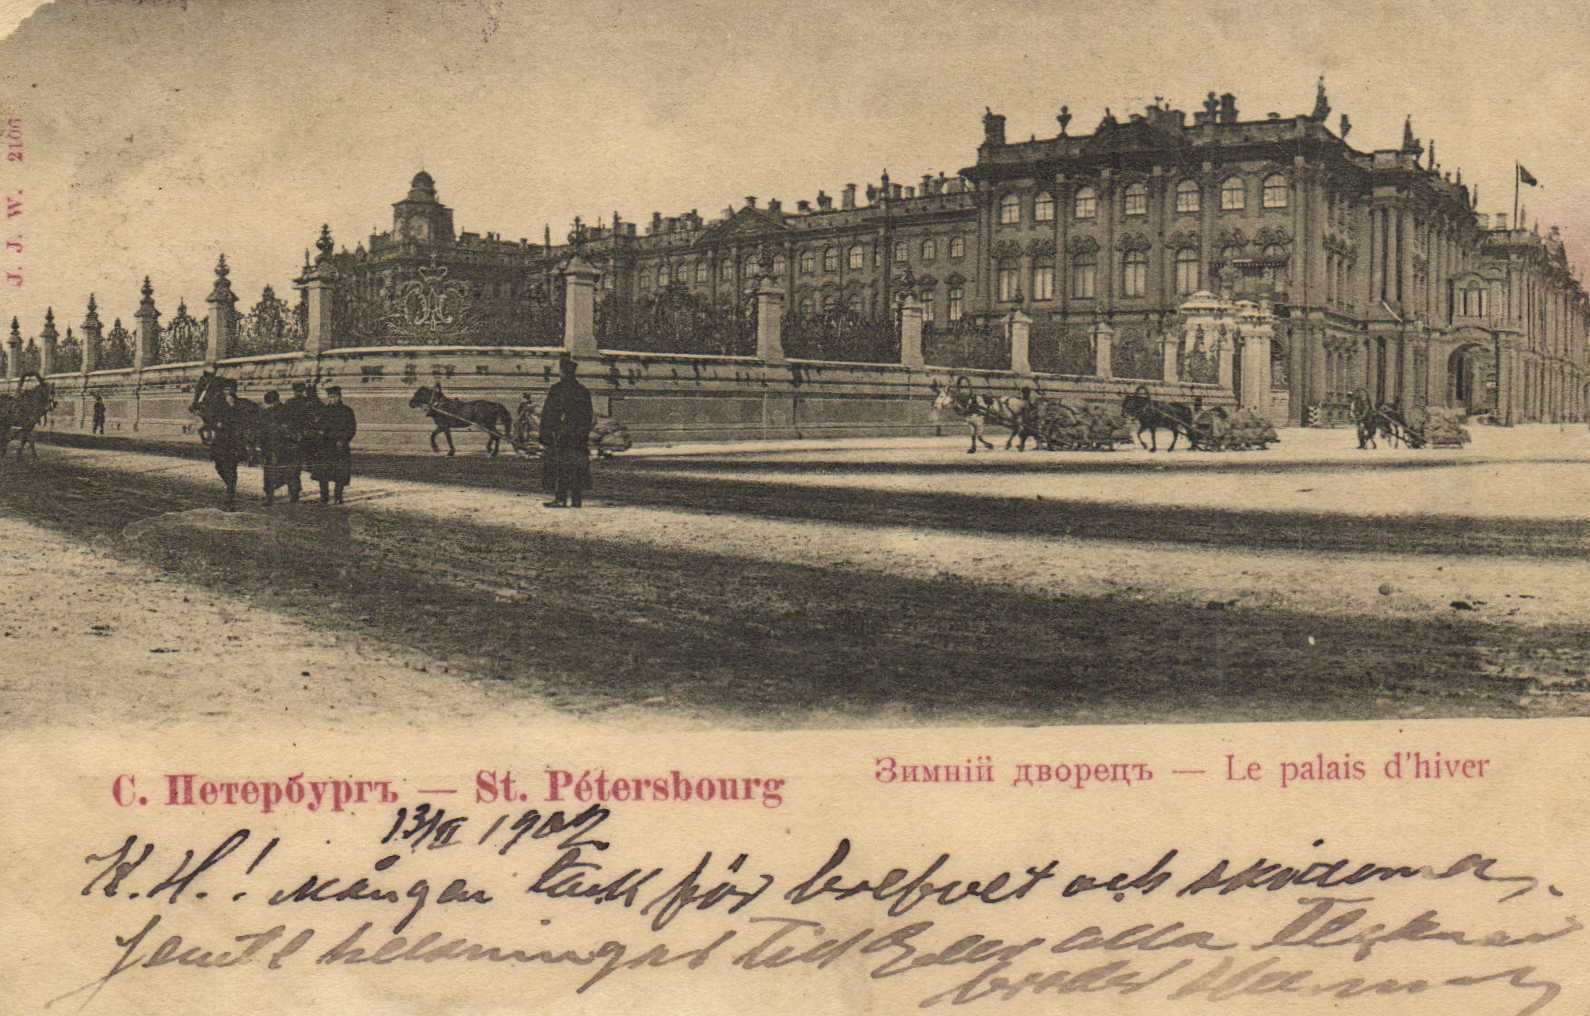 J. J. W. 2106
С. Петербургъ — St. Pétersbourg
Зимній дворецъ — Le palais d'hiver
13/II 1902
K. H.! Mången tack för brefvet och skidorna,
Jemte helsningar till Eder alla Tecknar
broder